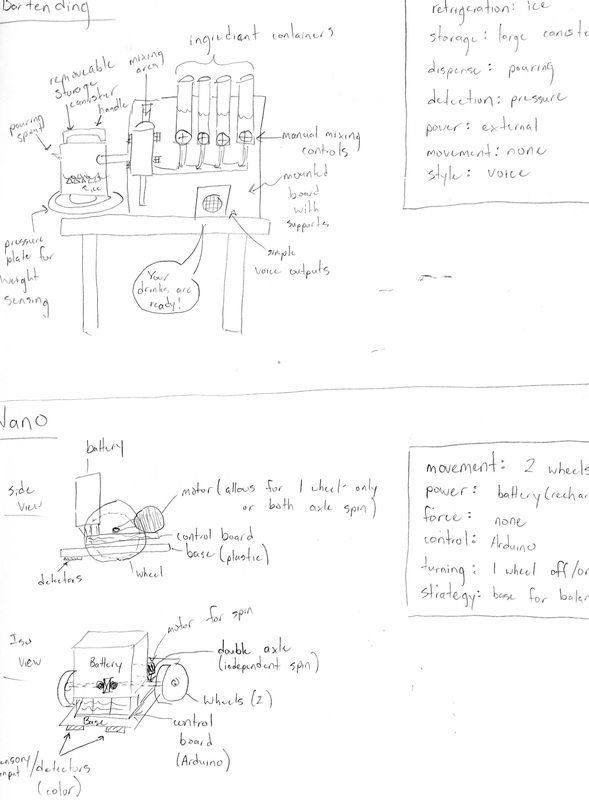 Bartending
ingredient containers
mixing
area
removeable
storage
canister
handle
pouring
spout
ice
manual mixing
controls
mounted
board
with
supports
simple
voice outputs
pressure
plate for
weight
sensing
Your
drinks are
ready!
refrigeration: ice
storage: large
dispense: pouring
detection: pressure
power: external
movement: none
style: voice
Nano
Side
View
battery
motor (allows for 1 wheel-only
or both axle spin)
control board
base (plastic)
wheel
detectors
Iso
View
motor for spin
double axle
(independent spin)
Battery
wheels (2)
Base
control
board
(Arduino)
sensory
input / detectors
(color)
movement: 2 wheels
power: battery
force: none
control: Arduino
turning: 1 wheel
strategy: base for